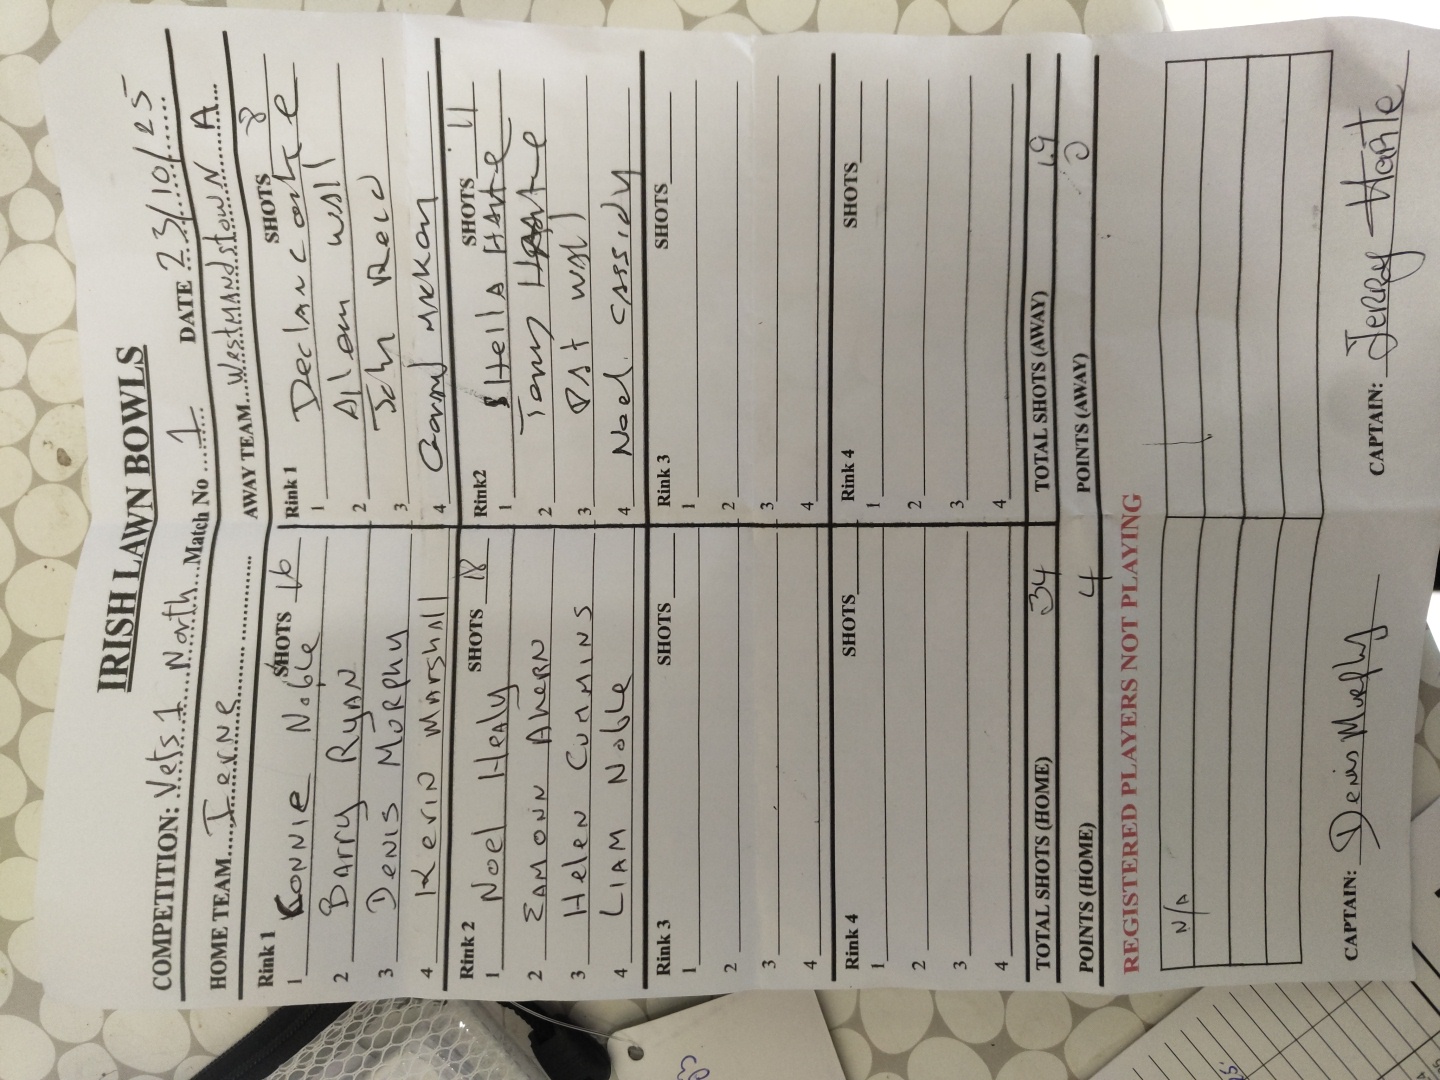 IRISH LAWN BOWLS
COMPETITION: Vets 1 North Match No 1 DATE 23/10/25
HOME TEAM Ierne AWAY TEAM Westmandstown A
Rink 1 SHOTS 16
1 Connie Noble
2 Barry Ryan
3 Denis Murphy
4 Kevin Marshall
Rink 1 SHOTS 8
1 Declan
2 Alan Wall
3 John Reid
4
Rink 2 SHOTS 18
1 Noel Healy
2 Eamonn Ahern
3 Helen Cummins
4 Liam Noble
Rink2 SHOTS 11
1 Stella Harte
2 Tony Harte
3 Pat Wall
4 Noel Cassidy
Rink 3 SHOTS
1
2
3
4
Rink 3 SHOTS
1
2
3
4
Rink 4 SHOTS
1
2
3
4
Rink 4 SHOTS
1
2
3
4
TOTAL SHOTS (HOME) 34 TOTAL SHOTS (AWAY) 19
POINTS (HOME) 4 POINTS (AWAY) 0
REGISTERED PLAYERS NOT PLAYING
N/A
CAPTAIN: Denis Murphy CAPTAIN: Jerry Harte